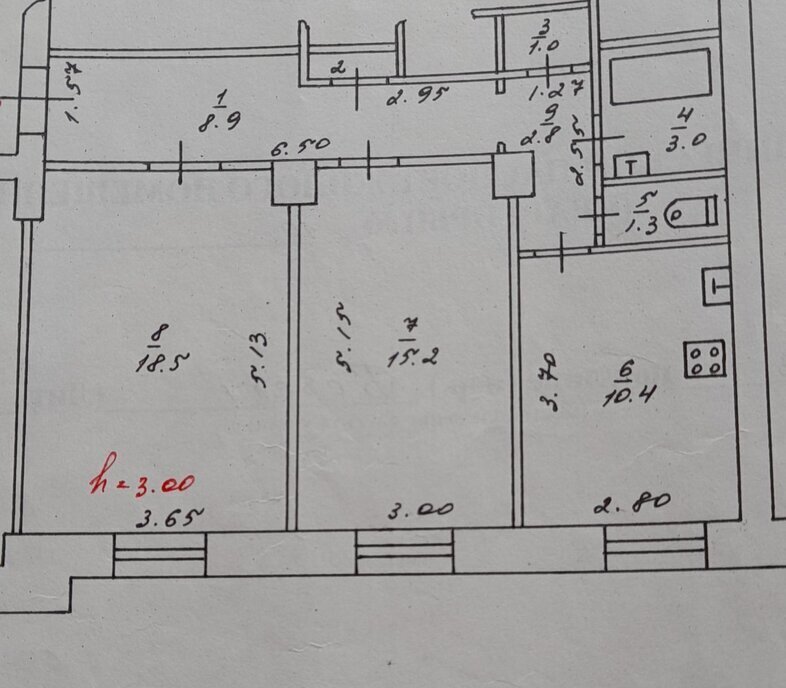 3
1.0
1.57
2
2.95
1.27
1
8.9
9
2.8
2.55
4
3.0
6.50
T
5
1.3
T
8
18.5
5.13
5.15
7
15.2
3.70
6
10.4
h=3.00
3.65
3.00
2.80